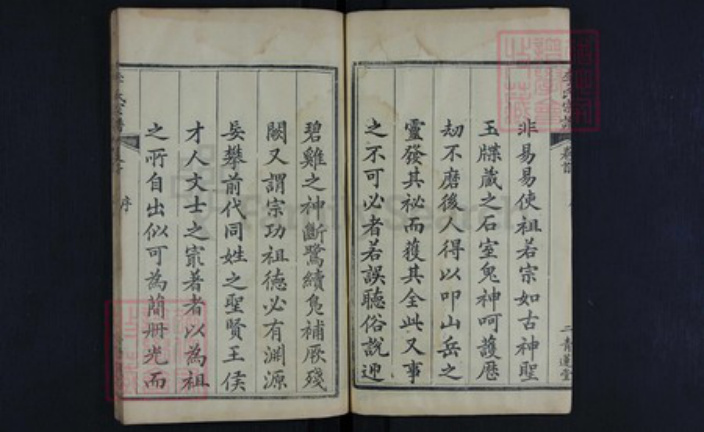 李氏宗譜 卷首
二 青蓮堂
非易易使祖若宗如古神聖
玉牒藏之石室鬼神呵護歷
劫不磨後人得以叩山岳之
靈發其祕而獲其全此又事
之不可必者若誤聽俗說迎
碧雞之神斷鷺續鳧補厥殘
闕又謂宗功祖德必有淵源
妄攀前代同姓之聖賢王侯
才人文士之宲著者以為祖
之所自出似可為簡冊光而
序